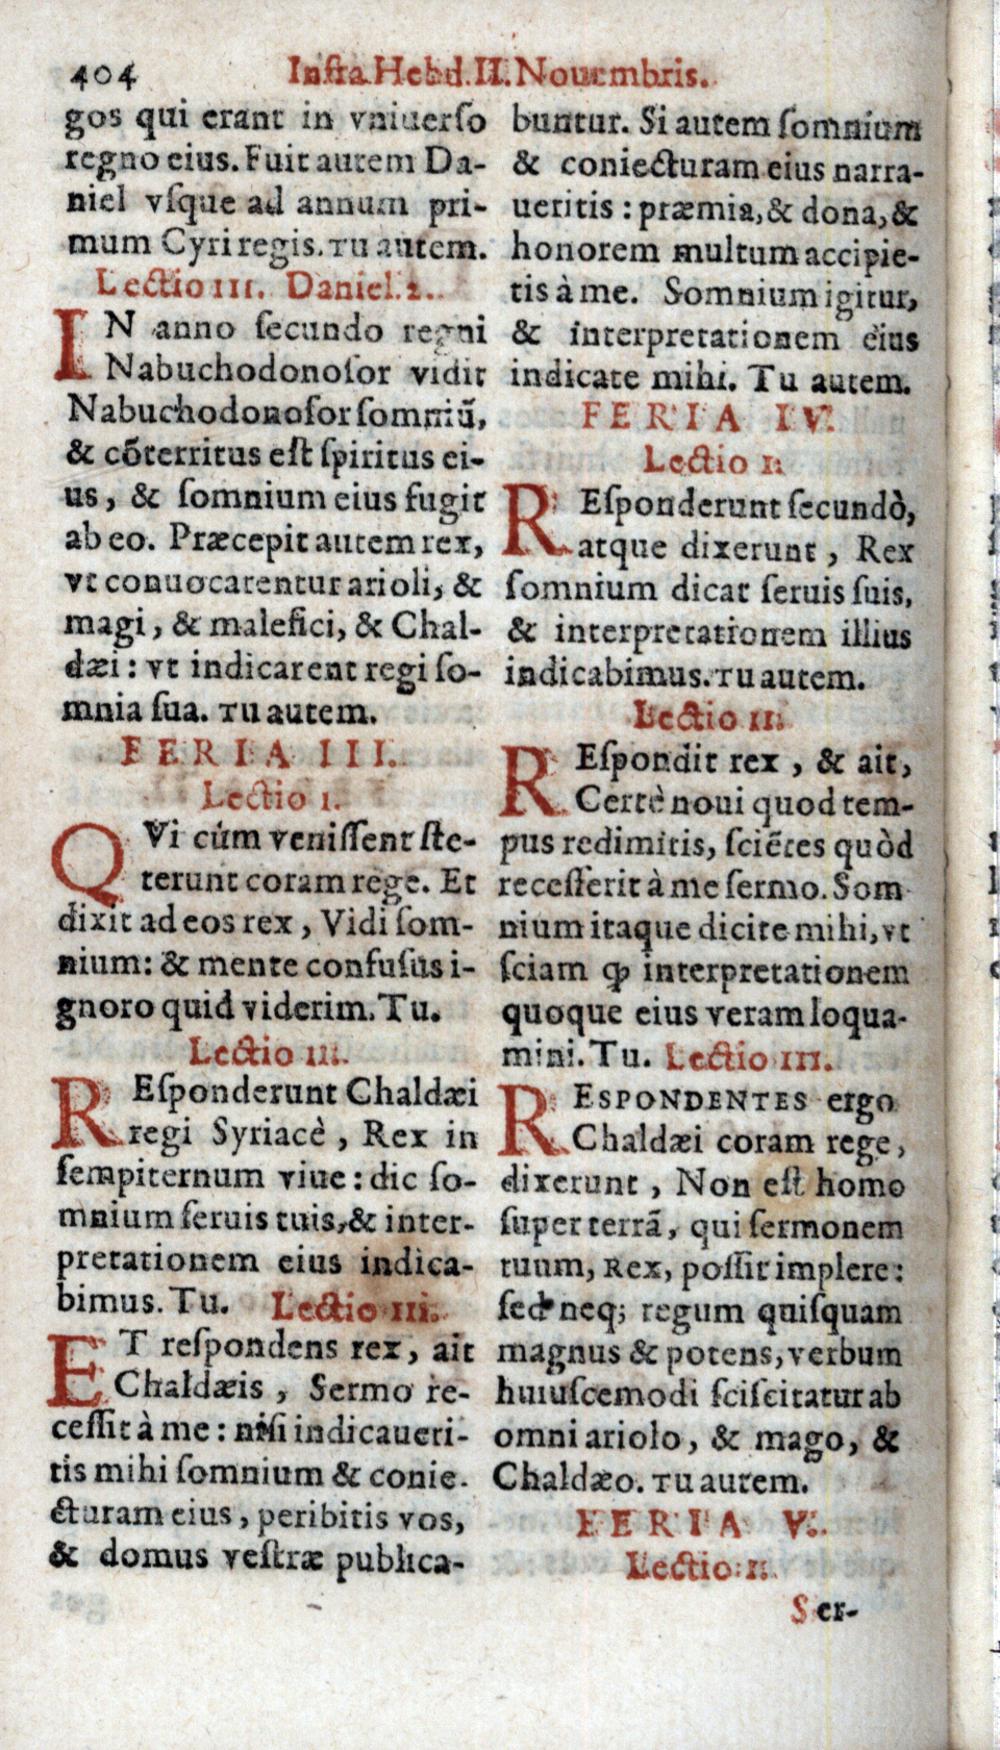 404 Infra Hebd. II. Nouembris.
gos qui erant in vniuerſo
regno eius. Fuit autem Da-
niel vſque ad annum pri-
mum Cyri regis. Tu autem.
Lectio III. Daniel. 2.
IN anno ſecundo regni
Nabuchodonoſor vidit
Nabuchodonoſor ſomniũ,
& cõterritus eſt ſpiritus ei-
us, & ſomnium eius fugit
ab eo. Præcepit autem rex,
vt conuocarentur arioli, &
magi, & malefici, & Chal-
dæi: vt indicarent regi ſo-
mnia ſua. Tu autem.
FERIA III.
Lectio I.
QVi cùm veniſſent ſte-
terunt coram rege. Et
dixit ad eos rex, Vidi ſom-
nium: & mente confuſus i-
gnoro quid viderim. Tu.
Lectio II.
REſponderunt Chaldæi
regi Syriacè, Rex in
ſempiternum viue: dic ſo-
mnium ſeruis tuis, & inter-
pretationem eius indica-
bimus. Tu. Lectio III.
ET reſpondens rex, ait
Chaldæis, Sermo re-
ceſſit à me: niſi indicaueri-
tis mihi ſomnium & conie-
cturam eius, peribitis vos,
& domus veſtræ publica-
buntur. Si autem ſomnium
& coniecturam eius narra-
ueritis: præmia, & dona, &
honorem multum accipie-
tis à me. Somnium igitur,
& interpretationem eius
indicate mihi. Tu autem.
FERIA IV.
Lectio I.
REſponderunt ſecundò,
atque dixerunt, Rex
ſomnium dicat ſeruis ſuis,
& interpretationem illius
indicabimus. Tu autem.
Lectio II.
REſpondit rex, & ait,
Certè noui quod tem-
pus redimitis, ſciẽtes quòd
receſſerit à me ſermo. Som
nium itaque dicite mihi, vt
ſciam ꝙ interpretationem
quoque eius veram loqua-
mini. Tu. Lectio III.
RESPONDENTES ergo
Chaldæi coram rege,
dixerunt, Non eſt homo
ſuper terrã, qui ſermonem
tuum, Rex, poſſit implere:
ſed neq; regum quiſquam
magnus & potens, verbum
huiuſcemodi ſciſcitatur ab
omni ariolo, & mago, &
Chaldæo. Tu autem.
FERIA V.
Lectio I.
Ser-